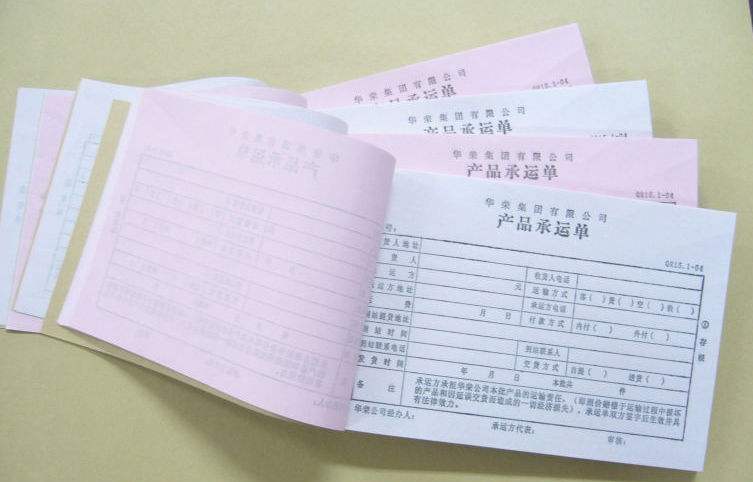 华荣集团有限公司
产品承运单
QR15.1-04
华荣集团有限公司
产品承运单
华荣集团有限公司
产品承运单
QR15.1-04
华荣集团有限公司
产品承运单
QR15.1-04
货人地址
货人 收货人电话
运方 元 运输方式 客( ) 货( ) 空( ) 铁( )
承运方地址 承运方电话
运费 月 日 付款方式 内付( ) 外付( )
到站提货地址
到站时间 到站联系人
到站联系电话 交货方式 自提( ) 送货( )
发货时间 年 月 日 本批共 件
备注 承运方承担华荣公司本批产品的运输责任。(即照价赔偿于运输过程中损坏
的产品和因延误交货而造成的一切经济损失),承运单双方签字后生效并具
有法律效力。
①存根
华荣公司经办人: 承运方代表: 审核: